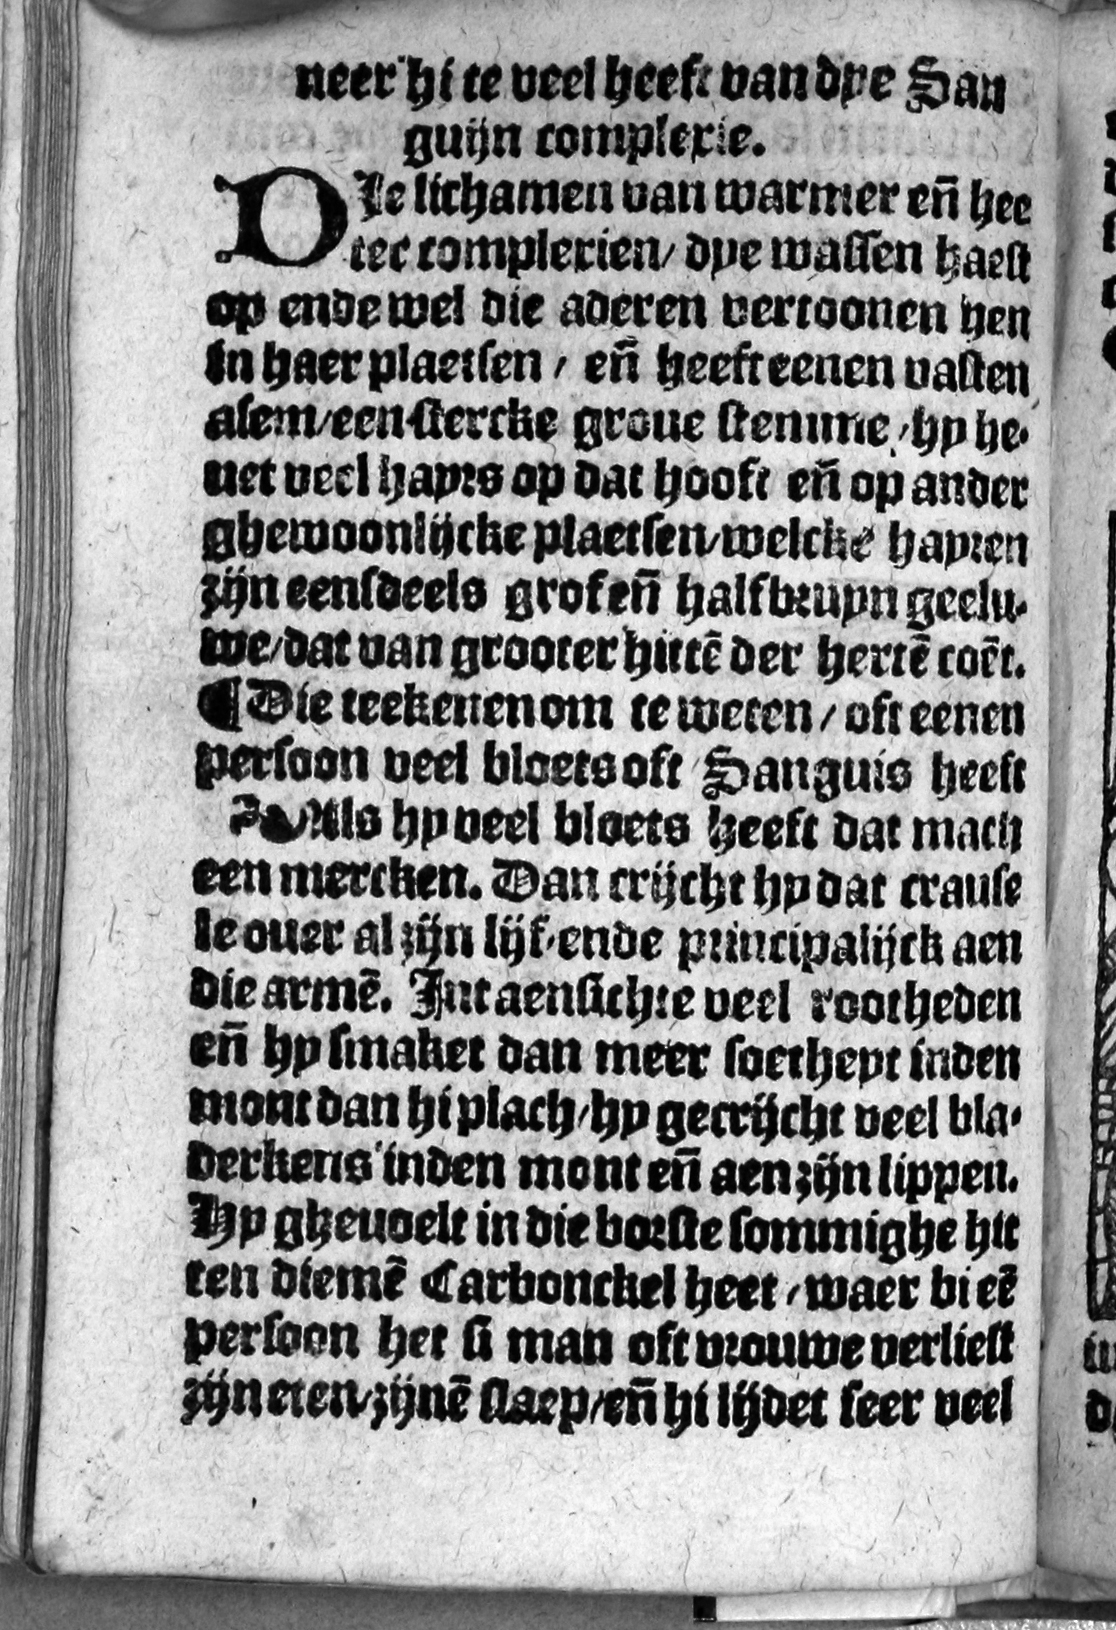 neer hi te veel heeft van dye San
guijn complexie.
DIe lichamen van warmer en̄ hee
ter complexien/ dye wassen haest
op ende wel die aderen vertoonen hen
In haer plaetsen / en̄ heeft eenen vasten
asem/een stercke groue stemme / hy he-
uet veel hayrs op dat hooft en̄ op ander
ghewoonlijcke plaetsen/welcke hayren
zijn eensdeels grof en̄ half bruyn geelu-
we/dat van grooter hittē der hertē coēt.
¶ Die teekenen om te weten / oft eenen
persoon veel bloets oft Sanguis heeft
Als hy veel bloets heeft dat mach
een mercken. Dan crijcht hy dat crause
le ouer al zijn lijf/ende principalijck aen
die armē. Int aensichte veel rootheden
en̄ hy smaket dan meer soetheyt inden
mont dan hi plach/hy gecrijcht veel bla-
derkens inden mont en̄ aen zijn lippen.
Hy gheuoelt in die borste sommighe hit
ten diemē Carbonckel heet / waer bi eē
persoon het si man oft vrouwe verliest
zijn eten/zijnē slaep/en̄ hi lijdet seer veel